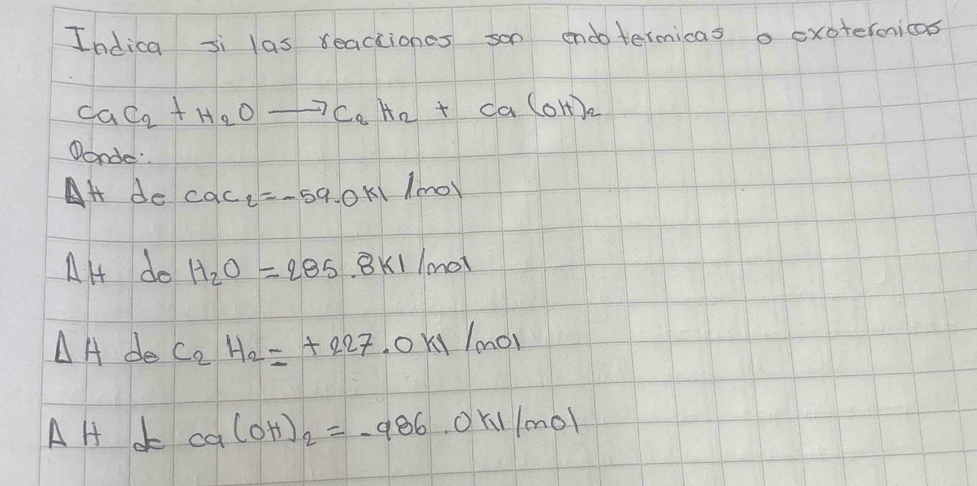 Indica si las reacciones son endotermicas o exotermicas
CaC₂ + H₂O → C₂H₂ + Ca(OH)₂
Donde:
ΔH de CaC₂ = -59.0 KJ/mol
ΔH de H₂O = 285.8 KJ/mol
ΔH de C₂H₂ = +227.0 KJ/mol
ΔH de Ca(OH)₂ = -986.0 KJ/mol